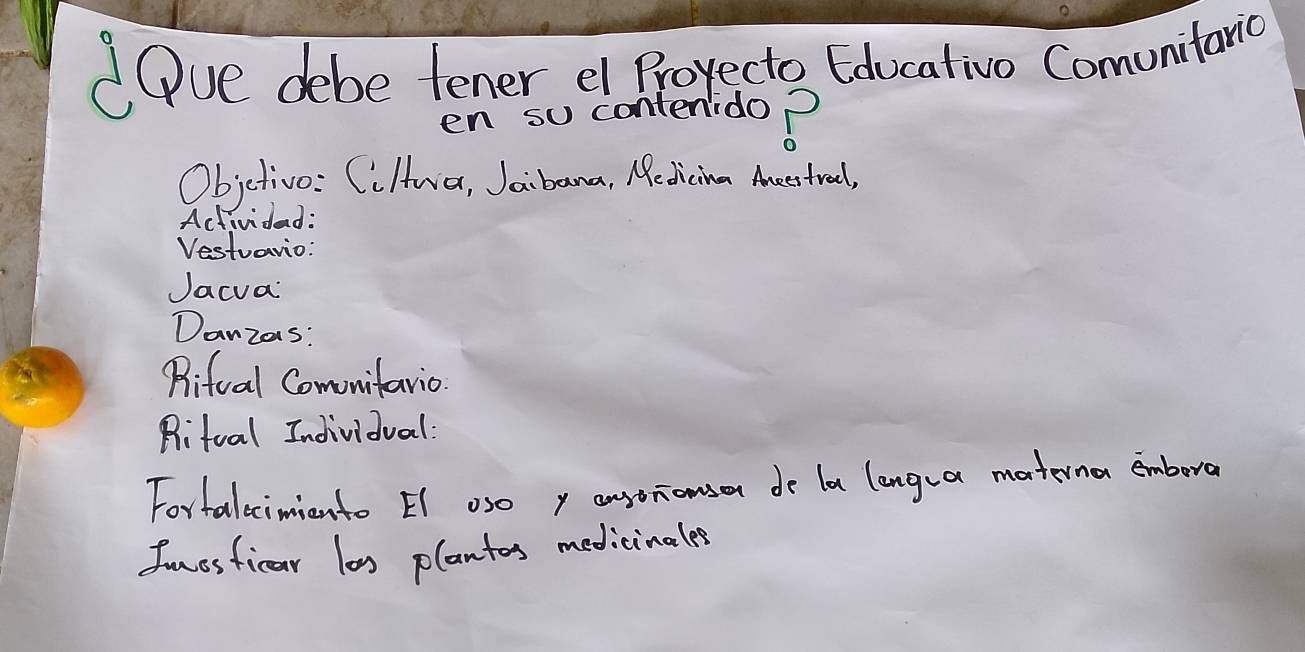 ¿Que debe tener el Proyecto Educativo Comunitario
en su contenido?
Objetivo: Cultura, Jaibana, Medicina Ancestral,
Actividad:
Vestuario:
Jacua:
Danzas:
Ritual Comunitario:
Ritual Individual:
Fortalecimiento El uso y de la lengua materna êmbera
las plantas medicinales